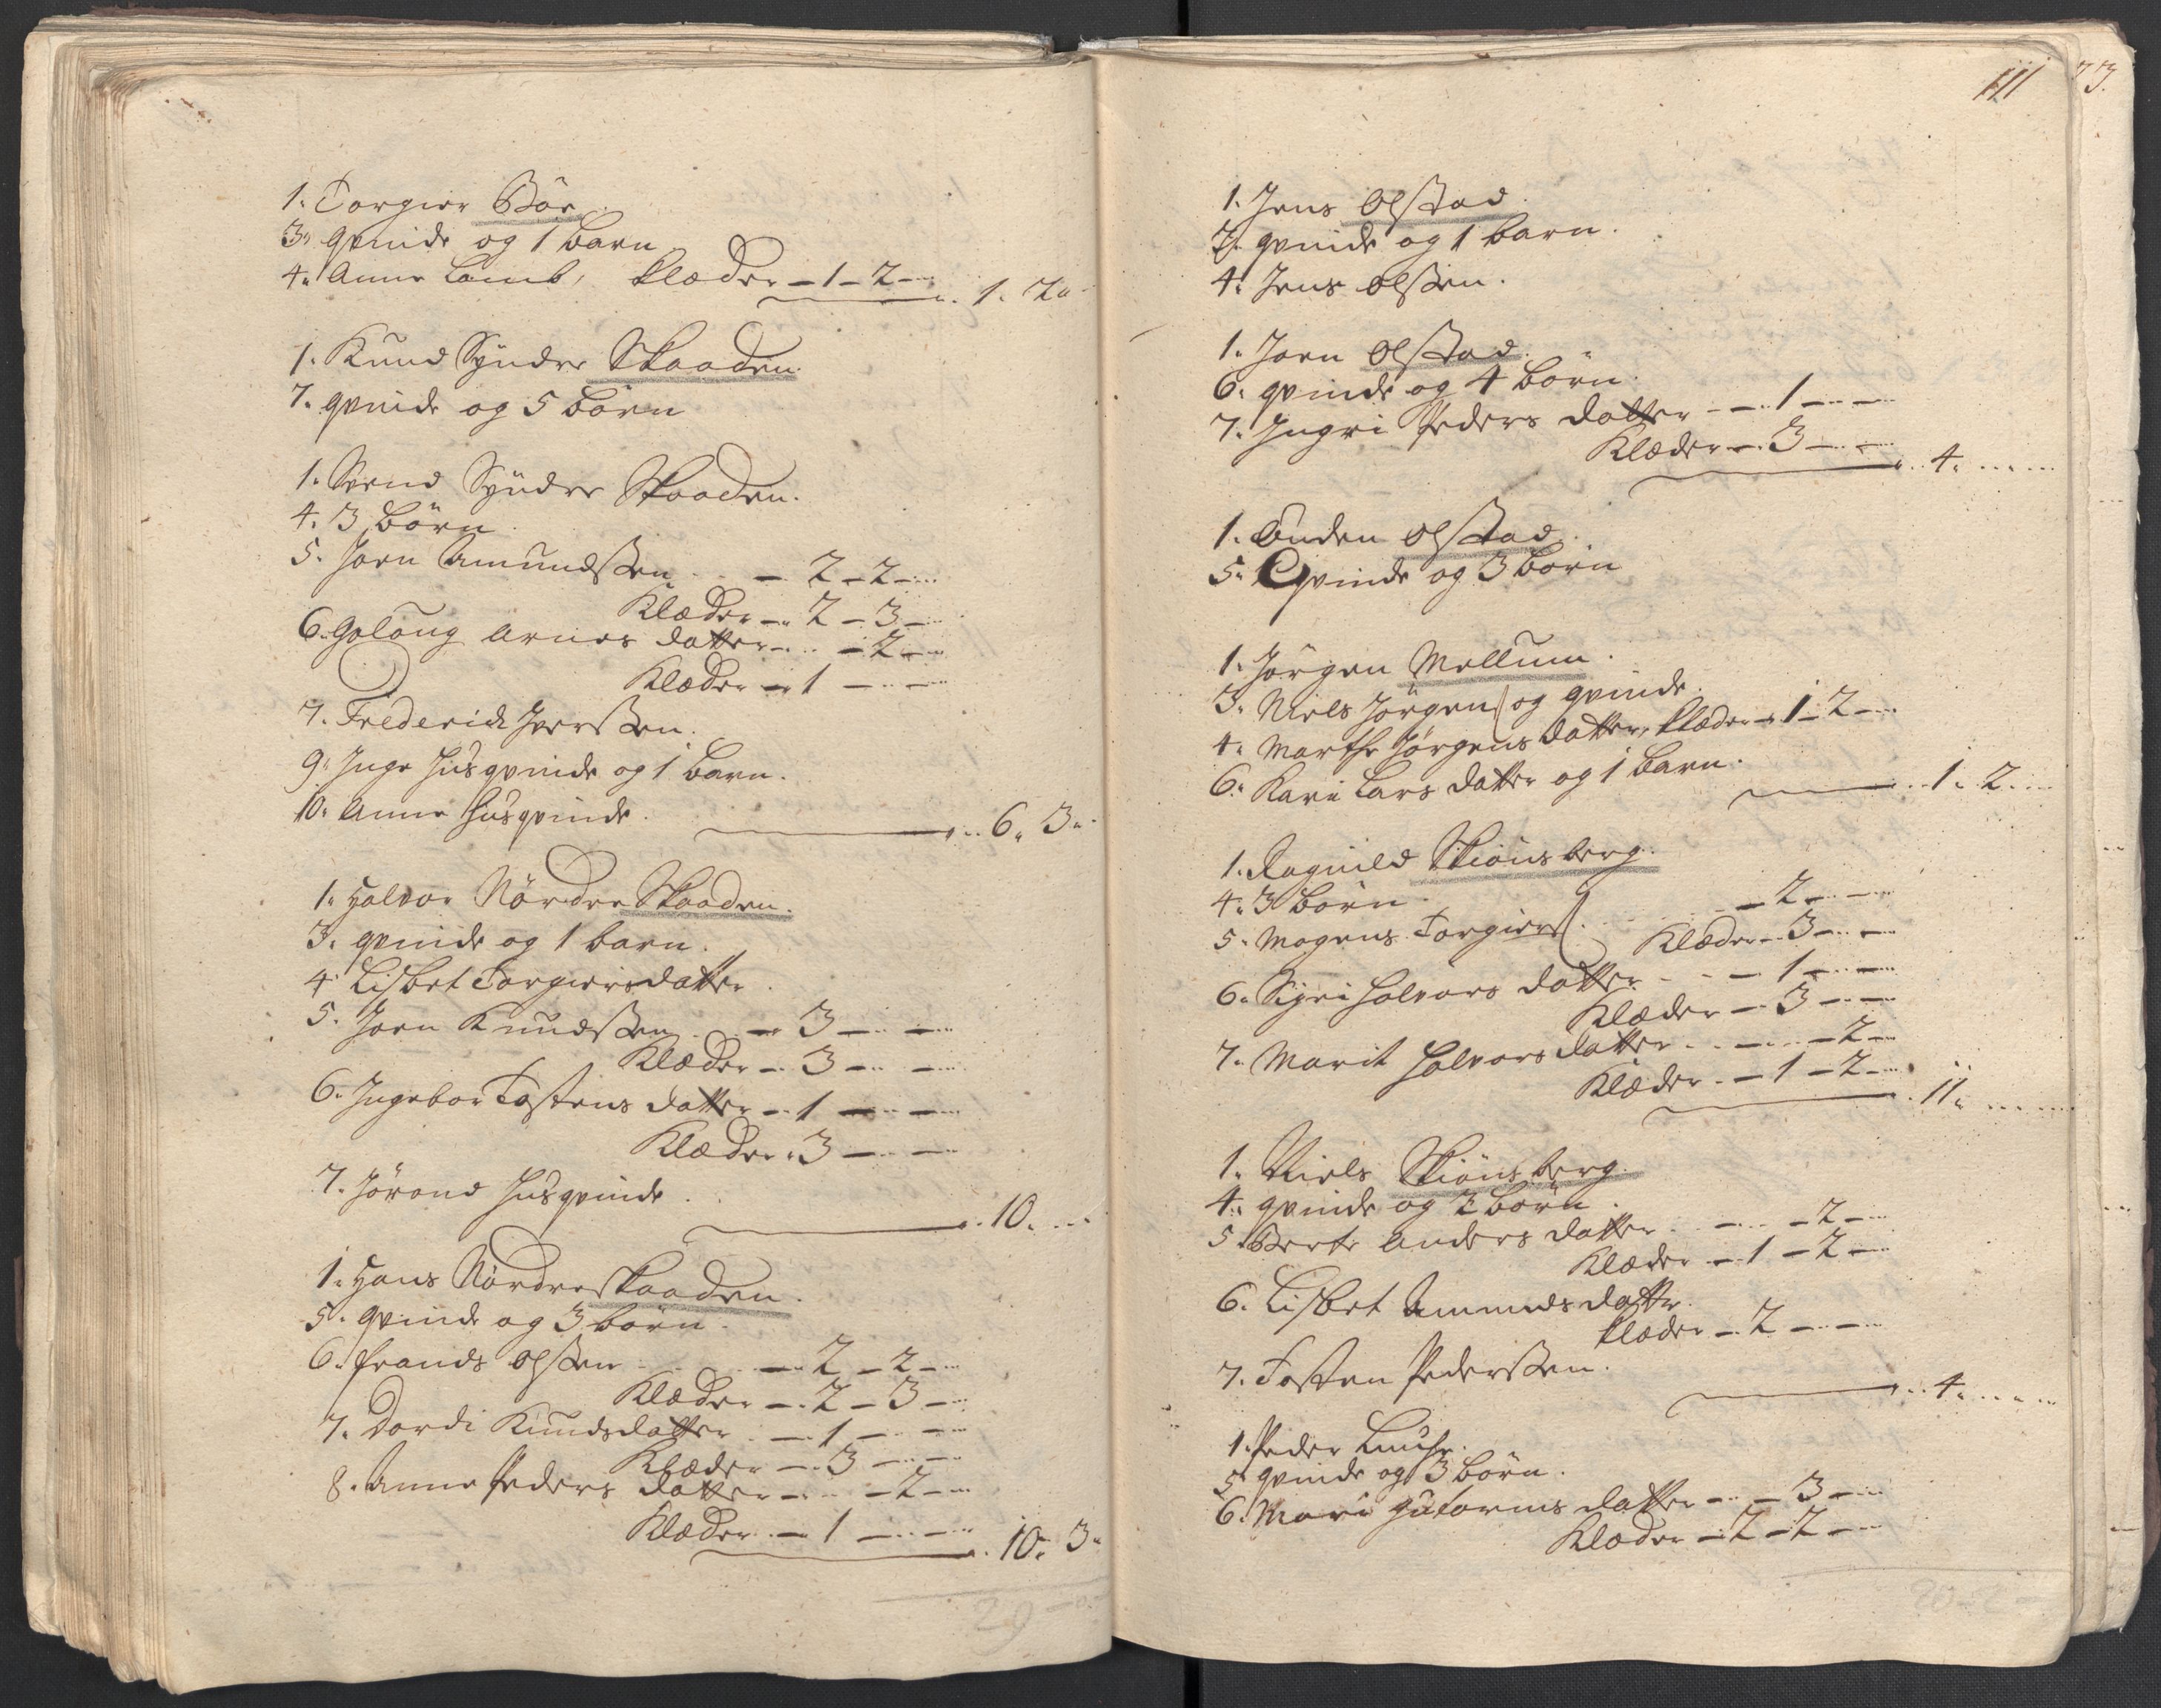 1. Torgier Böe
3. qvinde og 1 barn
4. Anne Lamb, klæder – 1 – 2 –
1. 2.
1. Knud Syndre Skaaden.
7. qvinde og 5 börn
1. Svend Syndre Skaaden.
4. 3 börn
5. Joen Amundssen – 2 – 2 –
Klæder – 2 – 3 –
6. Golaug Arnes datter – 2 –
Klæder – 1 –
7. Frederich Iverssen.
9. Inge Husqvinde og 1 barn.
10. Anne Husqvinde.
6. 3.
1. Halvor Nördre Skaaden.
3. qvinde og 1 barn.
4. Lisbet Torgiersdatter.
5. Joen Knudssen – 3 –
Klæder – 3 –
6. Ingebor Tostens datter – 1 –
Klæder – 3 –
7. Jörand Husqvinde.
10.
1. Hans Nördre Skaaden.
5. qvinde og 3 börn.
6. Frands Olssen – 2 – 2 –
Klæder – 2 – 3 –
7. Dordi Knudsdatter – 1 –
Klæder – 3 –
8. Anne Peders datter – 2 –
Klæder – 1 –
10. 3.
29
111
73.
1. Jens Olstad.
3. qvinde og 1 barn.
4. Jens Olssen.
1. Joen Olstad.
6. qvinde og 4 börn.
7. Ingri Peders datter – 1 –
Klæder – 3 –
4.
1. Enden Olstad.
5. qvinde og 3 börn
1. Jörgen Mellum.
3. Niels Jörgens: og qvinde.
4. Marthe Jörgens datter, klæder – 1 – 2 –
6. Kari Lars datter og 1 barn.
1. 2.
1. Ragnild Skiönsberg.
4. 3 börn.
5. Mogens Torgiers: – 2 –
Klæder – 3 –
6. Sigri Halvors datter – 1 –
Klæder – 3 –
7. Marit Halvors datter – 2 –
Klæder – 1 – 2 –
11.
1. Niels Skiönsberg.
4. qvinde og 2 börn.
5. Berte Anders datter – 2 –
Klæder – 1 – 2 –
6. Lisbet Amunds datter.
klæder – 2 –
7. Tosten Pederssen.
4.
1. Peder
5. qvinde og 3 börn.
6. Mari Gutorms datter – 3 –
Klæder – 2 – 2 –
20 – 2 –